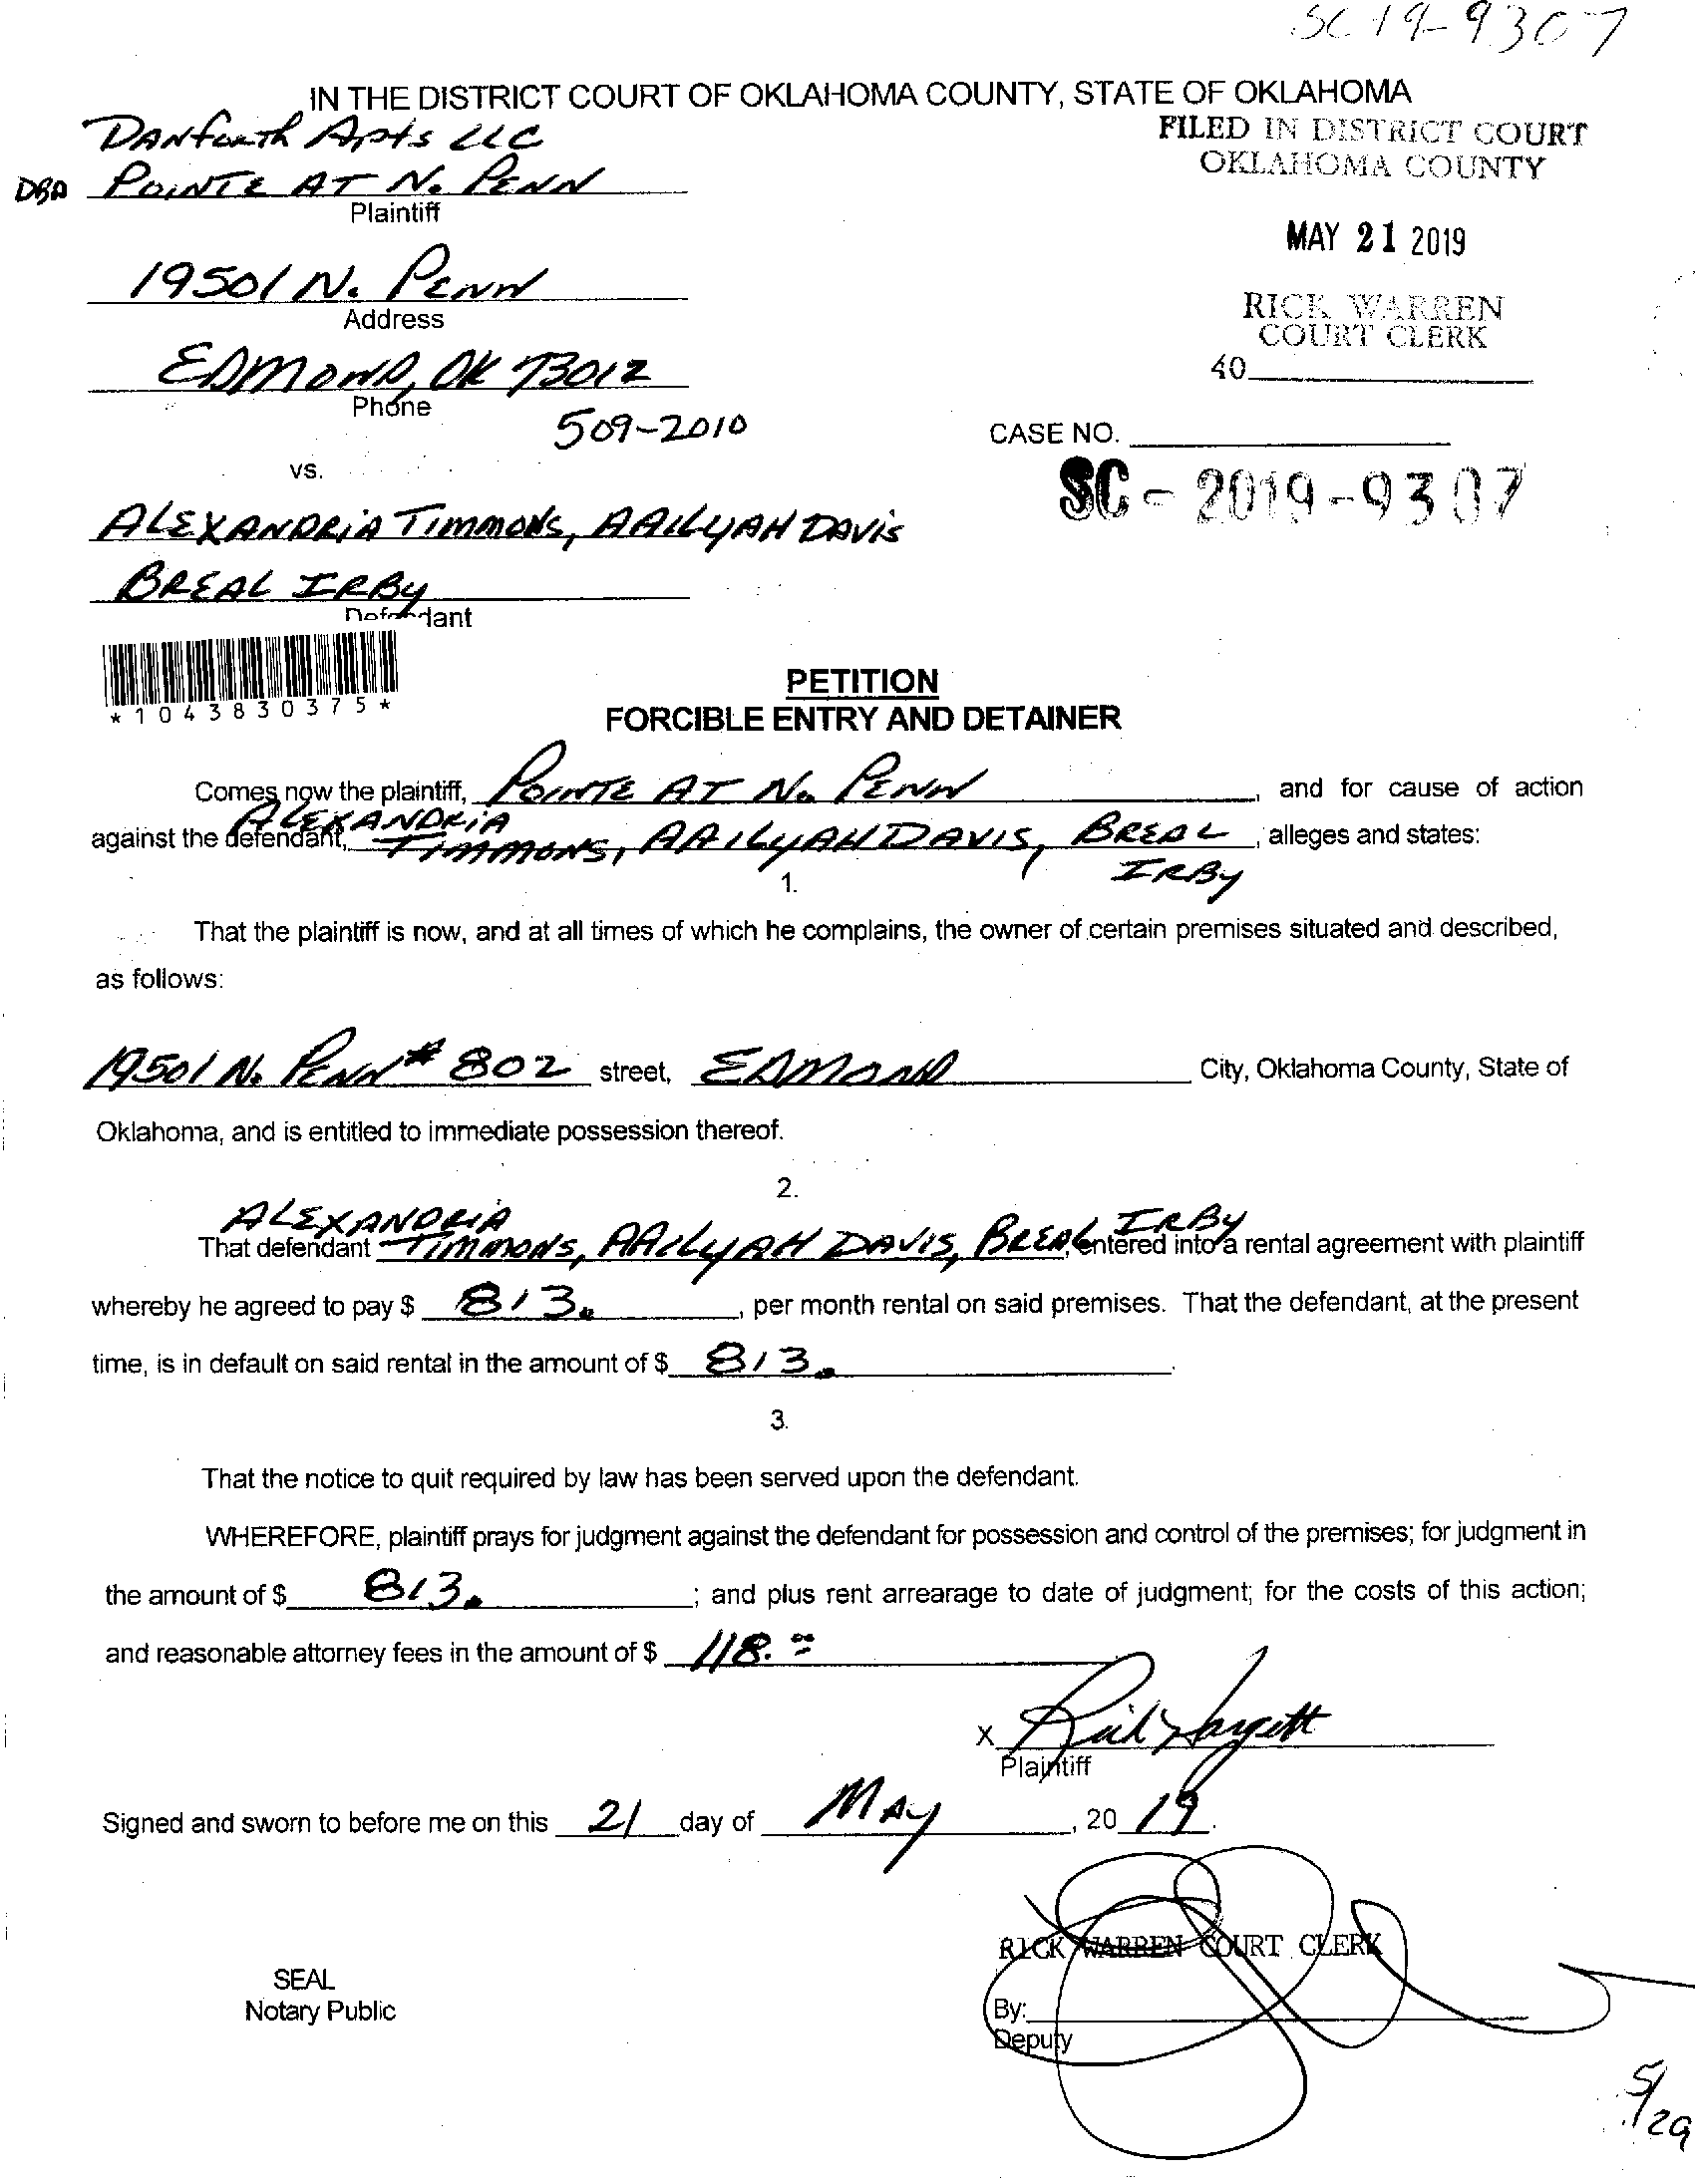 SC19-9307
IN THE DISTRICT COURT OF OKLAHOMA COUNTY, STATE OF OKLAHOMA
DANforth Apts LLC
FILED IN DISTRICT COURT
OKLAHOMA COUNTY
DBA POINTE AT N. PENN
Plaintiff
MAY 21 2019
19501 N. PENN
Address
RICK WARREN
COURT CLERK
40
EDMOND, OK 73012
Phone
509-2010
CASE NO.
vs.
SC - 2019 - 9307
ALEXANDRIA TIMMONS, AAILYAH DAVIS
BREAL IRBY
Defendant
*1043830375*
PETITION
FORCIBLE ENTRY AND DETAINER
Comes now the plaintiff, POINTE AT N. PENN, and for cause of action
against the defendant, ALEXANDRIA TIMMONS, AAILYAH DAVIS, BREAL IRBY, alleges and states:
1.
That the plaintiff is now, and at all times of which he complains, the owner of certain premises situated and described,
as follows:
19501 N. PENN # 802 street, EDMOND City, Oklahoma County, State of
Oklahoma, and is entitled to immediate possession thereof.
2.
That defendant ALEXANDRIA TIMMONS, AAILYAH DAVIS, BREAL IRBY, entered into a rental agreement with plaintiff
whereby he agreed to pay $ 813., per month rental on said premises. That the defendant, at the present
time, is in default on said rental in the amount of $ 813..
3.
That the notice to quit required by law has been served upon the defendant.
WHEREFORE, plaintiff prays for judgment against the defendant for possession and control of the premises; for judgment in
the amount of $ 813. ; and plus rent arrearage to date of judgment; for the costs of this action;
and reasonable attorney fees in the amount of $ 118.00
X
Plaintiff
Signed and sworn to before me on this 21 day of MAY, 20 19.
RICK WARREN COURT CLERK
SEAL
Notary Public
By:
Deputy
5/29